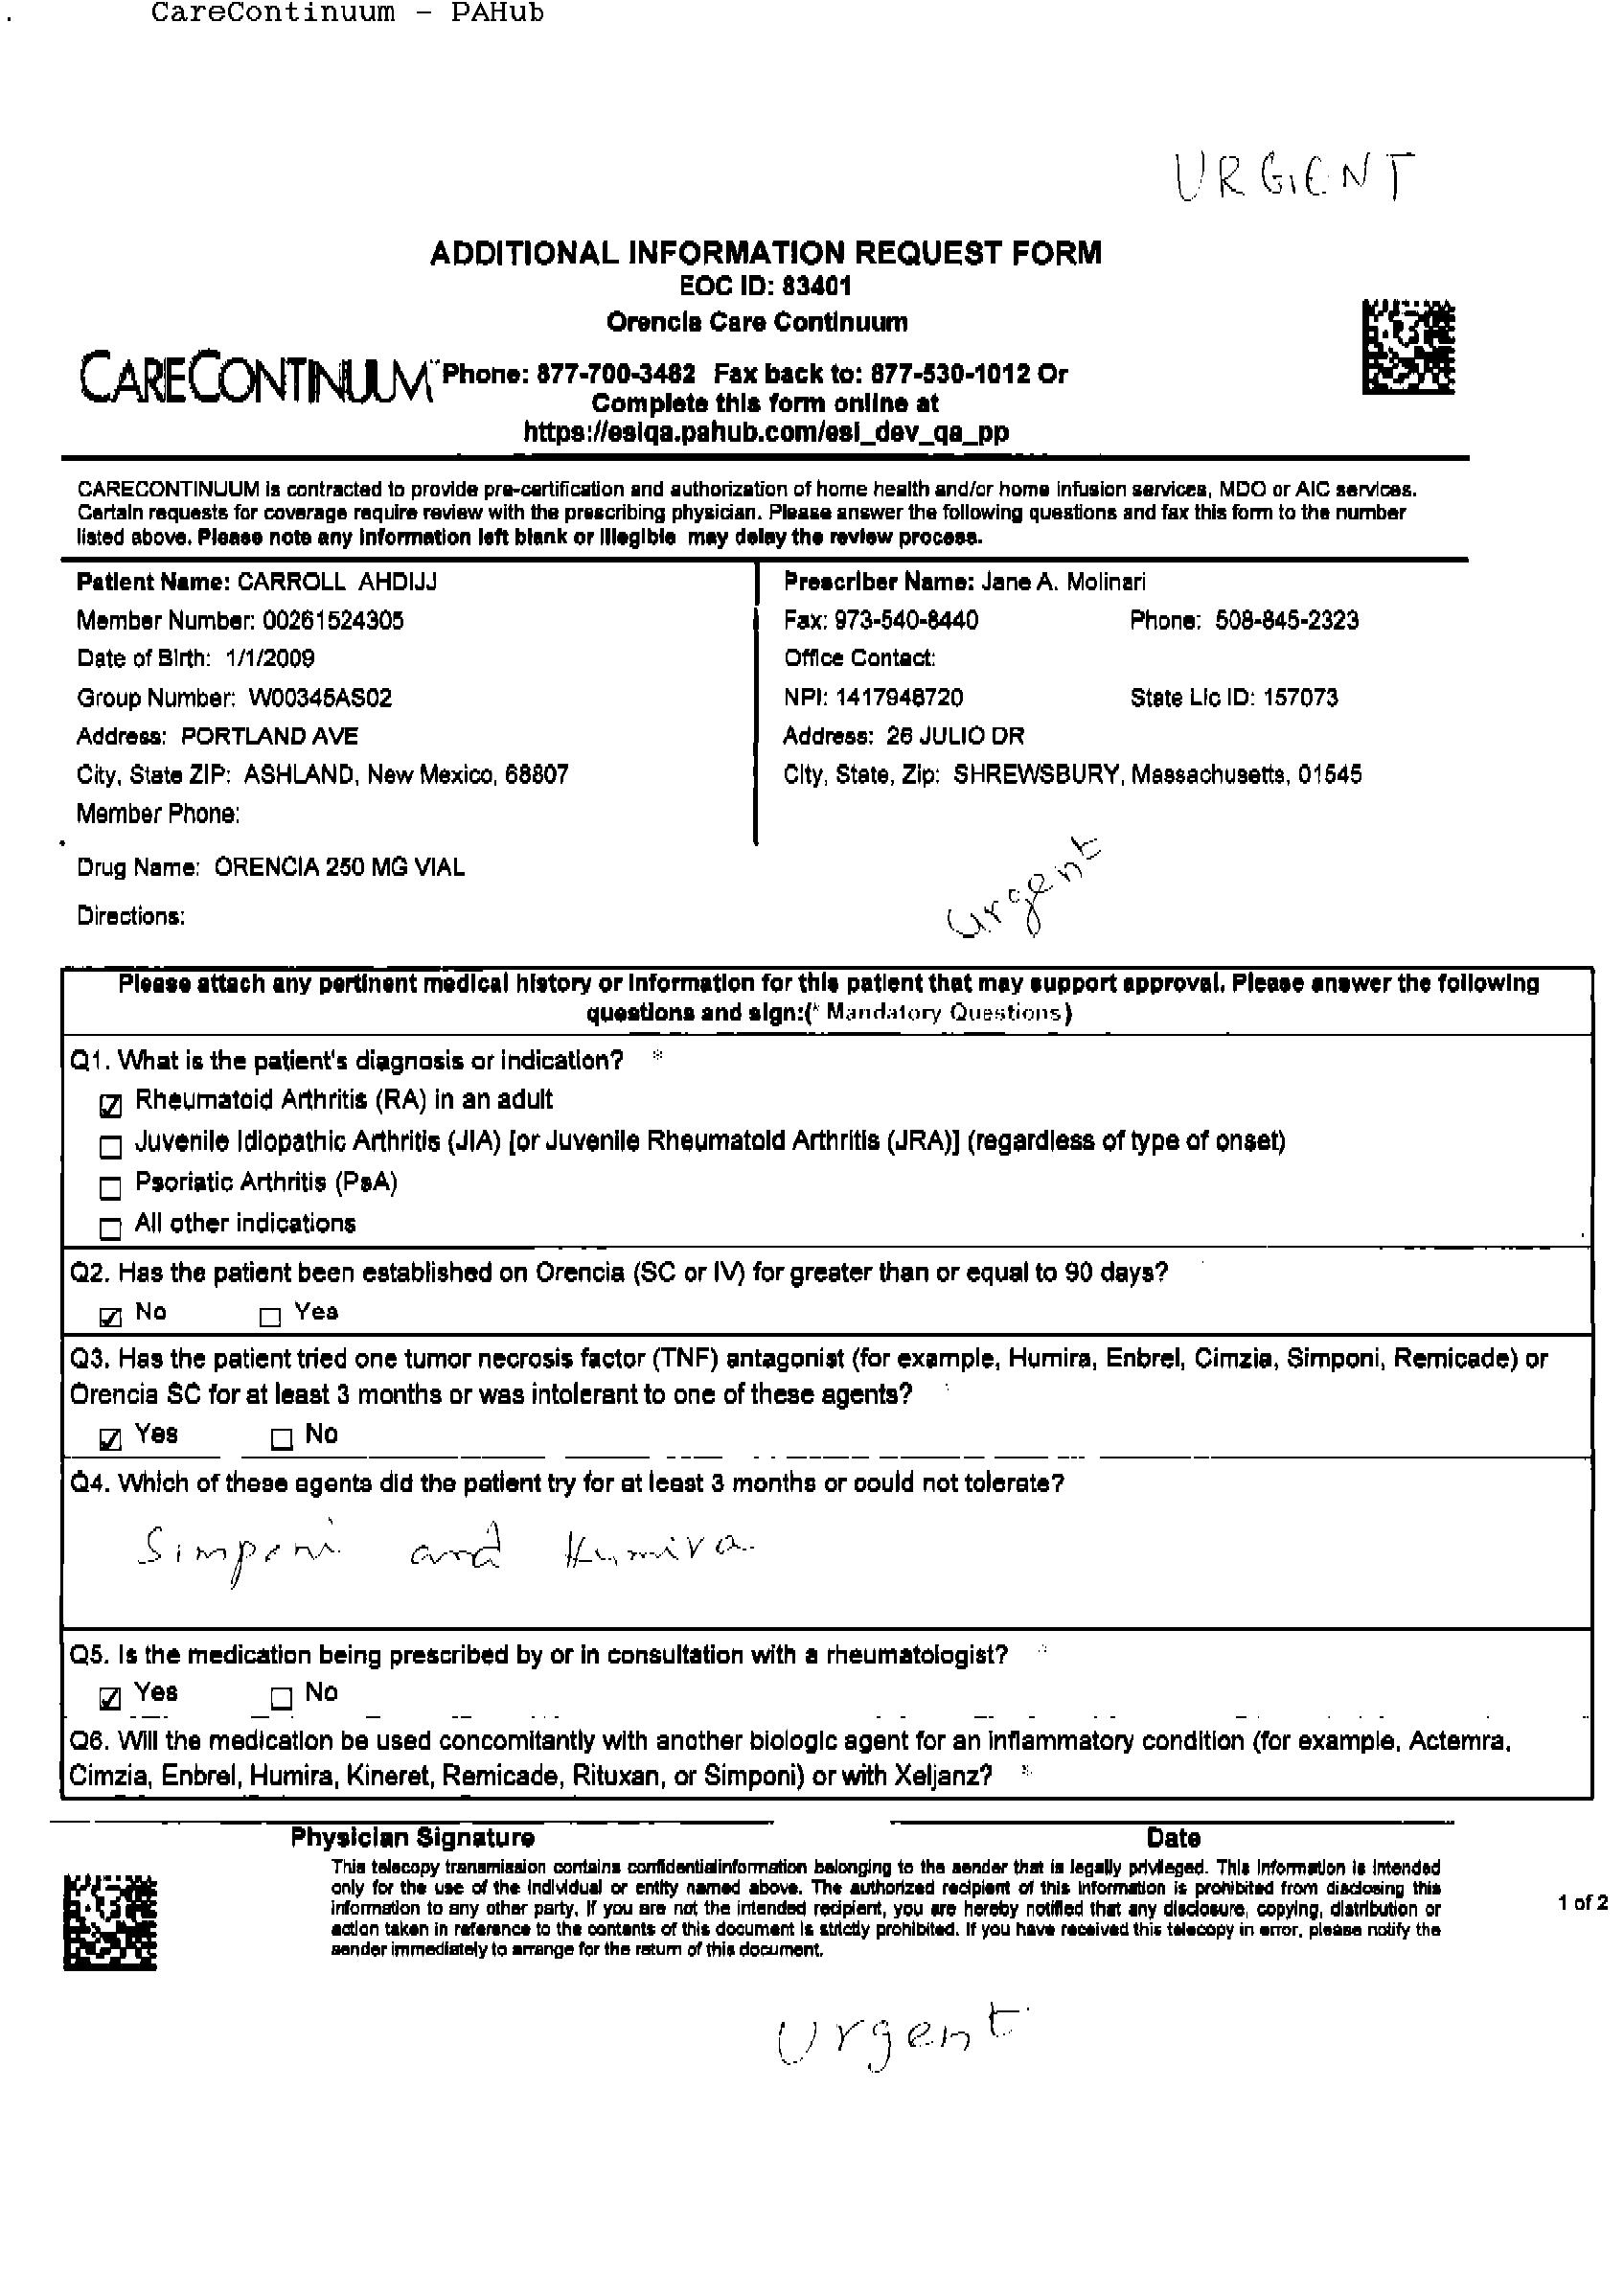 CareContinuum - PAHub
URGENT
ADDITIONAL INFORMATION REQUEST FORM
EOC ID: 83401
Orencia Care Continuum
CARECONTINUUM Phone: 877-700-3482 Fax back to: 877-530-1012 Or
Complete this form online at
https://esiqa.pahub.com/esi_dev_qa_pp
CARECONTINUUM is contracted to provide pre-certification and authorization of home health and/or home infusion services, MDO or AIC services.
Certain requests for coverage require review with the prescribing physician. Please answer the following questions and fax this form to the number
listed above. Please note any information left blank or illegible may delay the review process.
Patient Name: CARROLL AHDIJJ
Prescriber Name: Jane A. Molinari
Member Number: 00261524305
Fax: 973-540-8440 Phone: 508-845-2323
Date of Birth: 1/1/2009
Office Contact:
Group Number: W00345AS02
NPI: 1417948720 State Lic ID: 157073
Address: PORTLAND AVE
Address: 26 JULIO DR
City, State ZIP: ASHLAND, New Mexico, 68807
City, State, Zip: SHREWSBURY, Massachusetts, 01545
Member Phone:
Drug Name: ORENCIA 250 MG VIAL
urgent
Directions:
Please attach any pertinent medical history or information for this patient that may support approval. Please answer the following
questions and sign:(* Mandatory Questions)
Q1. What is the patient's diagnosis or indication? *
☑ Rheumatoid Arthritis (RA) in an adult
☐ Juvenile Idiopathic Arthritis (JIA) [or Juvenile Rheumatoid Arthritis (JRA)] (regardless of type of onset)
☐ Psoriatic Arthritis (PsA)
☐ All other indications
Q2. Has the patient been established on Orencia (SC or IV) for greater than or equal to 90 days?
☑ No ☐ Yes
Q3. Has the patient tried one tumor necrosis factor (TNF) antagonist (for example, Humira, Enbrel, Cimzia, Simponi, Remicade) or
Orencia SC for at least 3 months or was intolerant to one of these agents?
☑ Yes ☐ No
Q4. Which of these agents did the patient try for at least 3 months or could not tolerate?
Simponi and Humira
Q5. Is the medication being prescribed by or in consultation with a rheumatologist? *
☑ Yes ☐ No
Q6. Will the medication be used concomitantly with another biologic agent for an inflammatory condition (for example, Actemra,
Cimzia, Enbrel, Humira, Kineret, Remicade, Rituxan, or Simponi) or with Xeljanz? *
Physician Signature Date
This telecopy transmission contains confidentialinformation belonging to the sender that is legally privileged. This information is intended
only for the use of the individual or entity named above. The authorized recipient of this information is prohibited from disclosing this
information to any other party. If you are not the intended recipient, you are hereby notified that any disclosure, copying, distribution or
action taken in reference to the contents of this document is strictly prohibited. If you have received this telecopy in error, please notify the
sender immediately to arrange for the return of this document.
1 of 2
Urgent